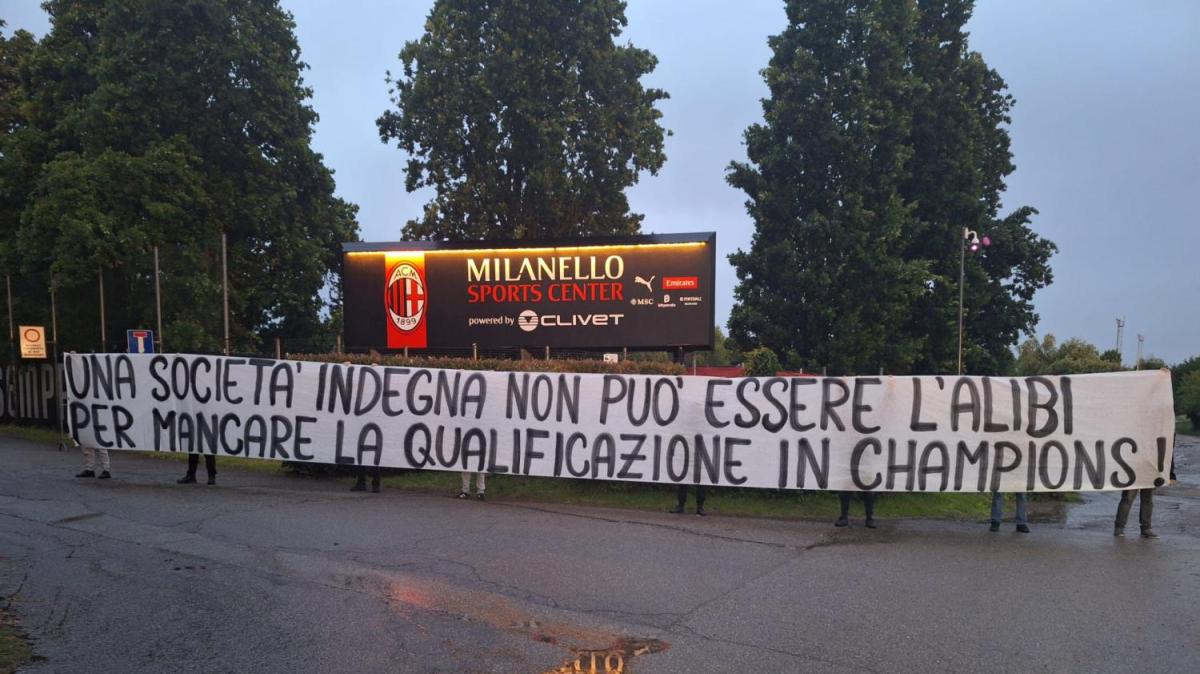 ACM
1899
MILANELLO
SPORTS CENTER
powered by CLIVET
Emirates
MSC
UNA SOCIETA' INDEGNA NON PUO' ESSERE L'ALIBI
PER MANCARE LA QUALIFICAZIONE IN CHAMPIONS!